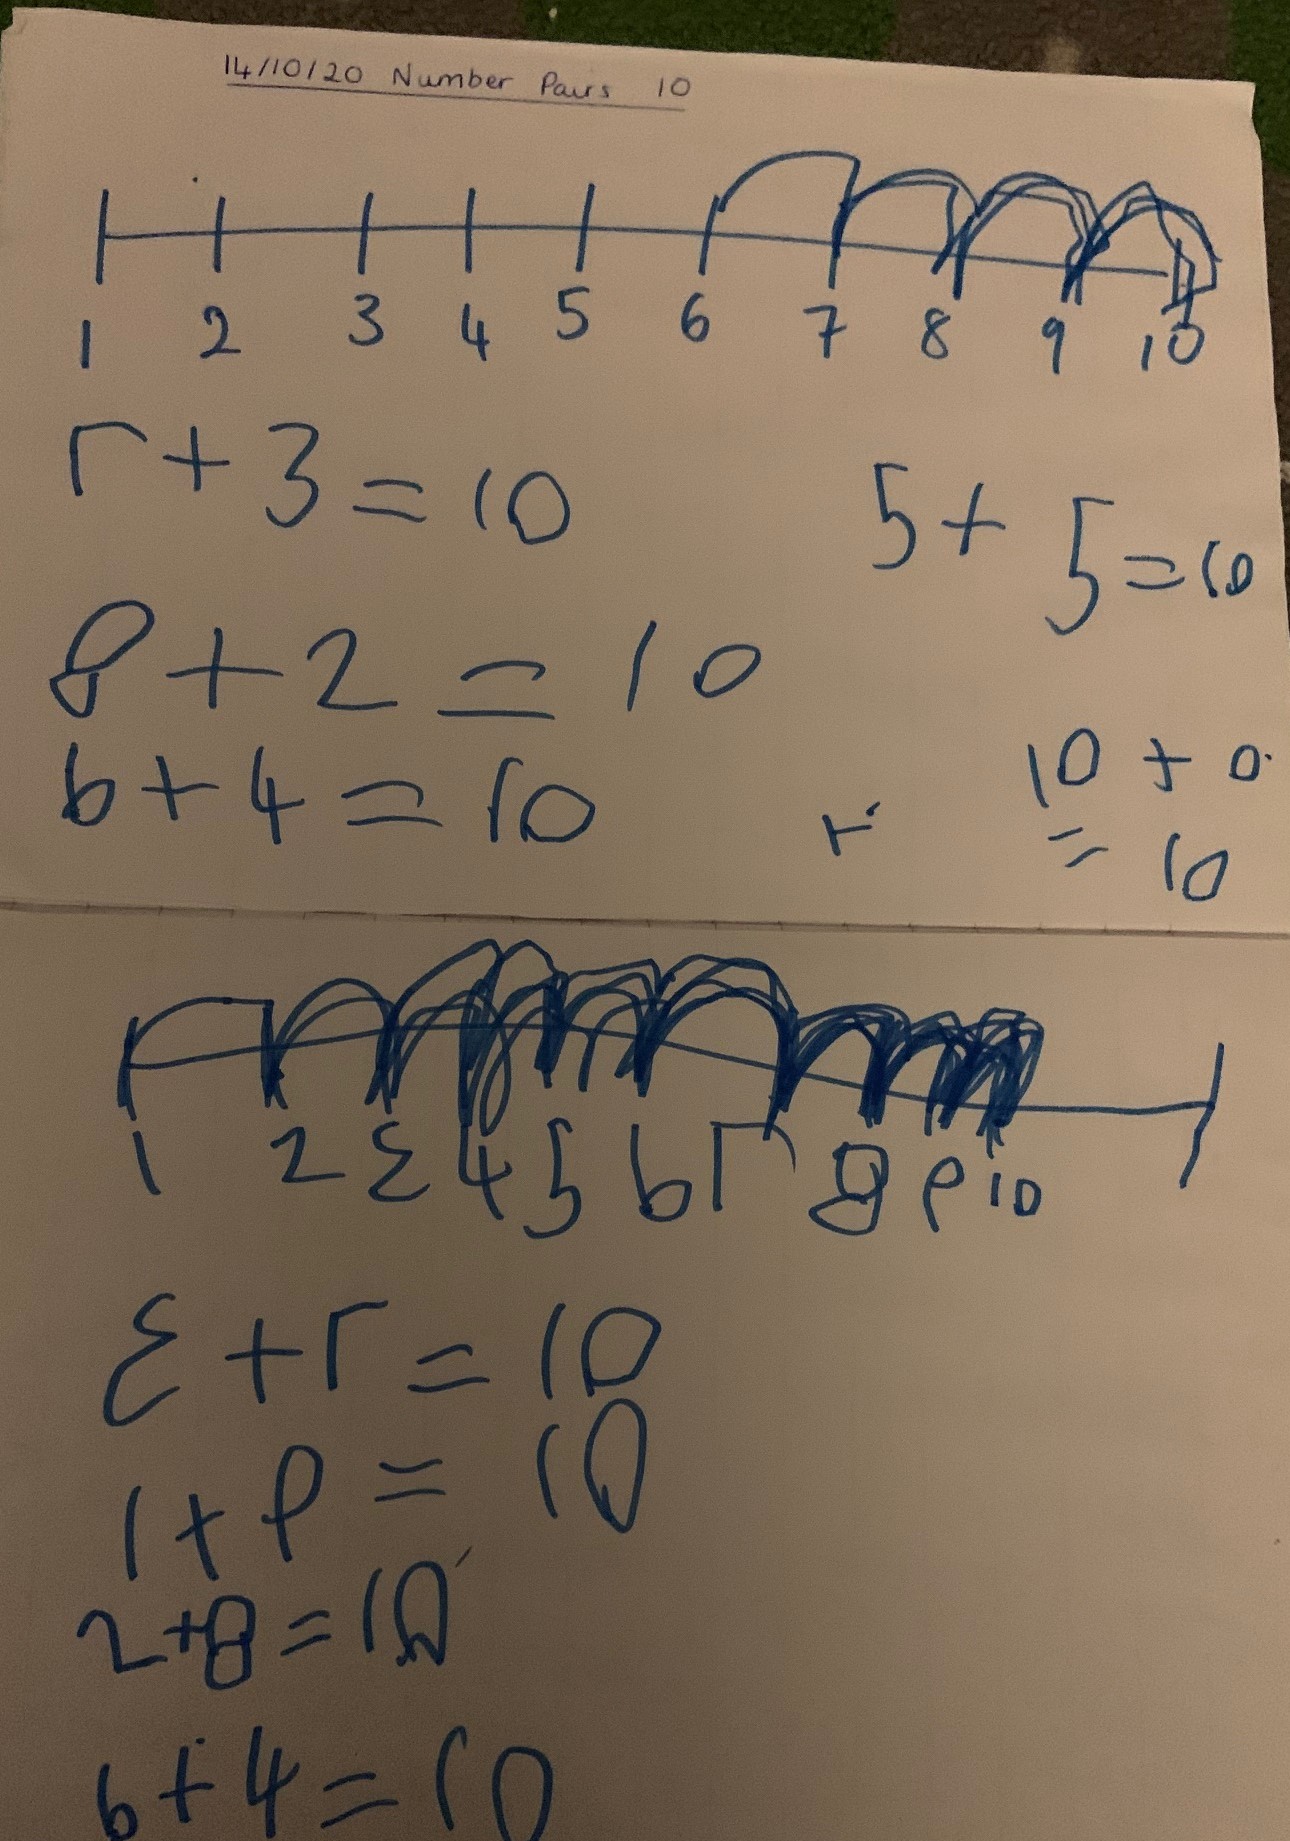 14/10/20 Number Pairs 10
1 2 3 4 5 6 7 8 9 10
7 + 3 = 10
5 + 5 = 10
8 + 2 = 10
6 + 4 = 10
10 + 0
= 10
1 2 3 4 5 6 7 8 9 10
3 + 7 = 10
1 + 9 = 10
2 + 8 = 10
6 + 4 = 10